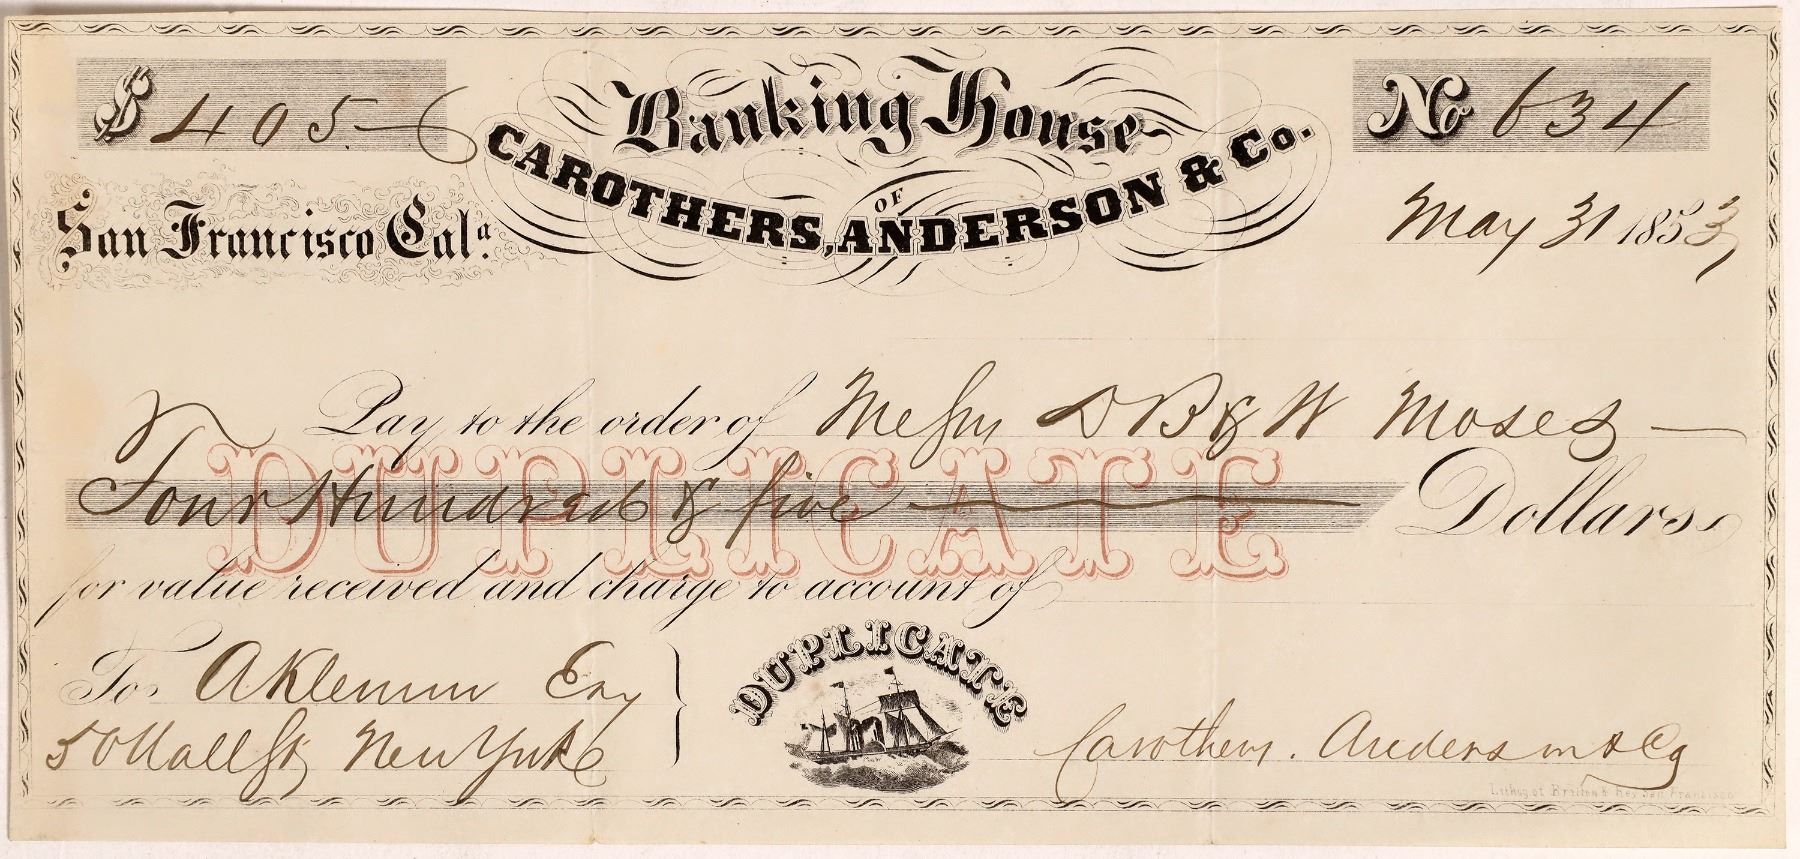 $ 405-
Banking House
No 634
OF
CAROTHERS, ANDERSON & Co.
San Francisco Cala.
May 31 1853
Pay to the order of Messrs D B & W Moses
DUPLICATE
Four Hundred & five Dollars
for value received and charge to account of
DUPLICATE
To A Klemm Esq
50 Wall St New York
Carothers. Anderson & Co
Lithog. of Britton & Rey San Francisco